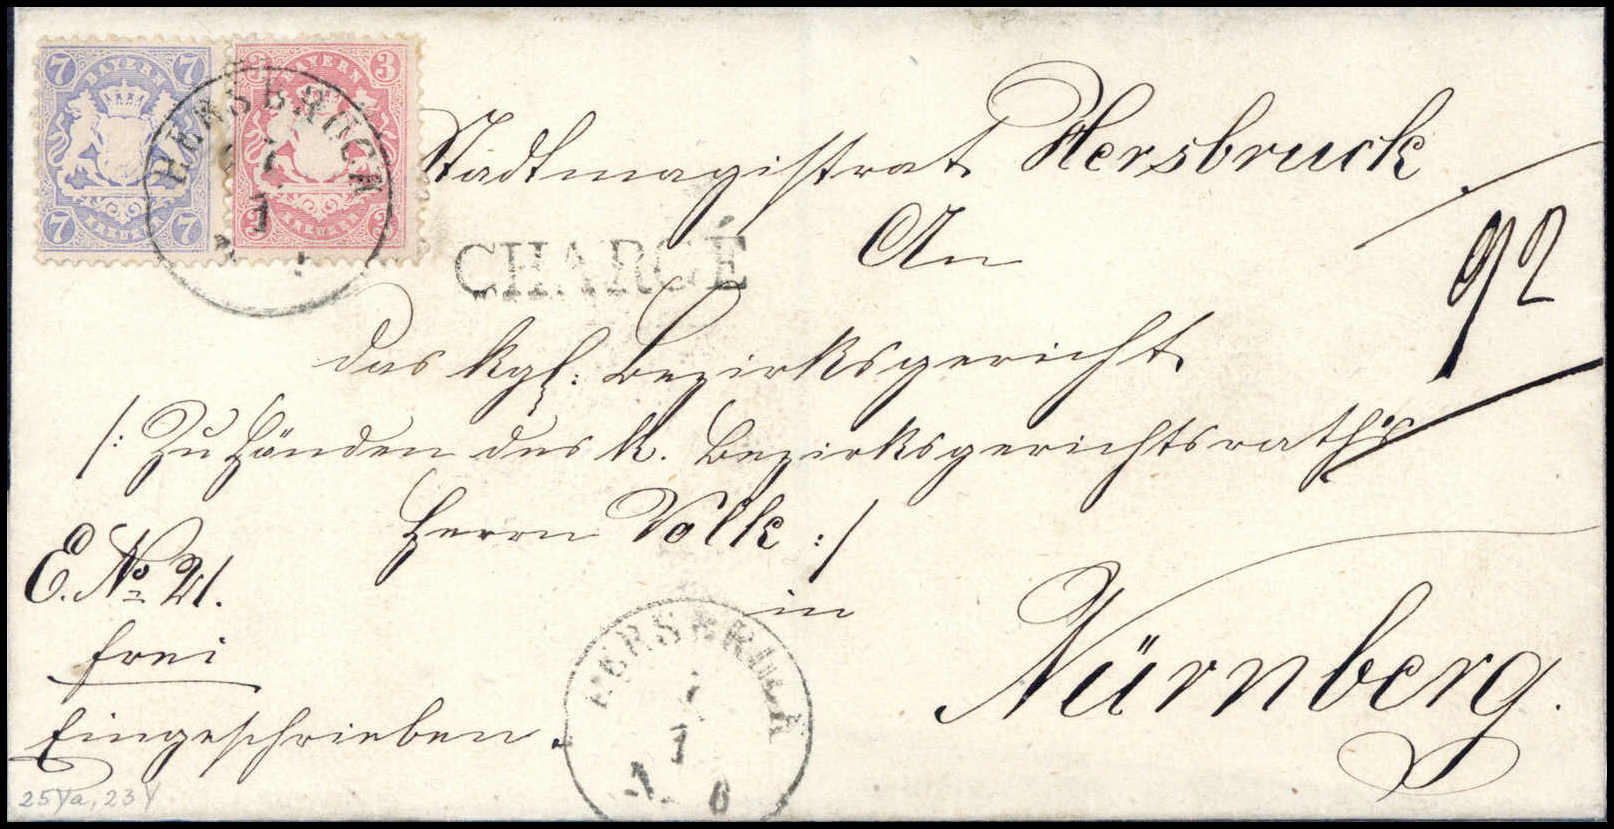 7 7 3 3
BAYERN BAYERN
HERSBRUCK
7
7 7 3 3
KREUZER KREUZER
Stadtmagistrat Hersbruck
CHARGÉ
An
92
das kgl: Bezirksgericht
/: Zu Händen des k. Bezirksgerichtsraths
Herrn Volk :/
E. No 21.
in
frei
Nürnberg.
Eingeschrieben.
HERSBRUCK
7
6
25Ya, 23Y